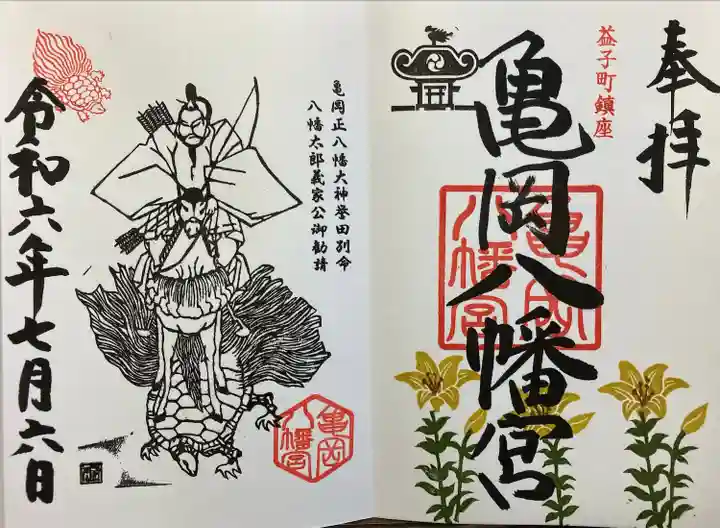 奉拝
益子町鎮座
亀岡八幡宮
亀岡八幡宮
亀岡正八幡大神誉田別命
八幡太郎義家公御勧請
亀岡八幡宮
令和六年七月六日